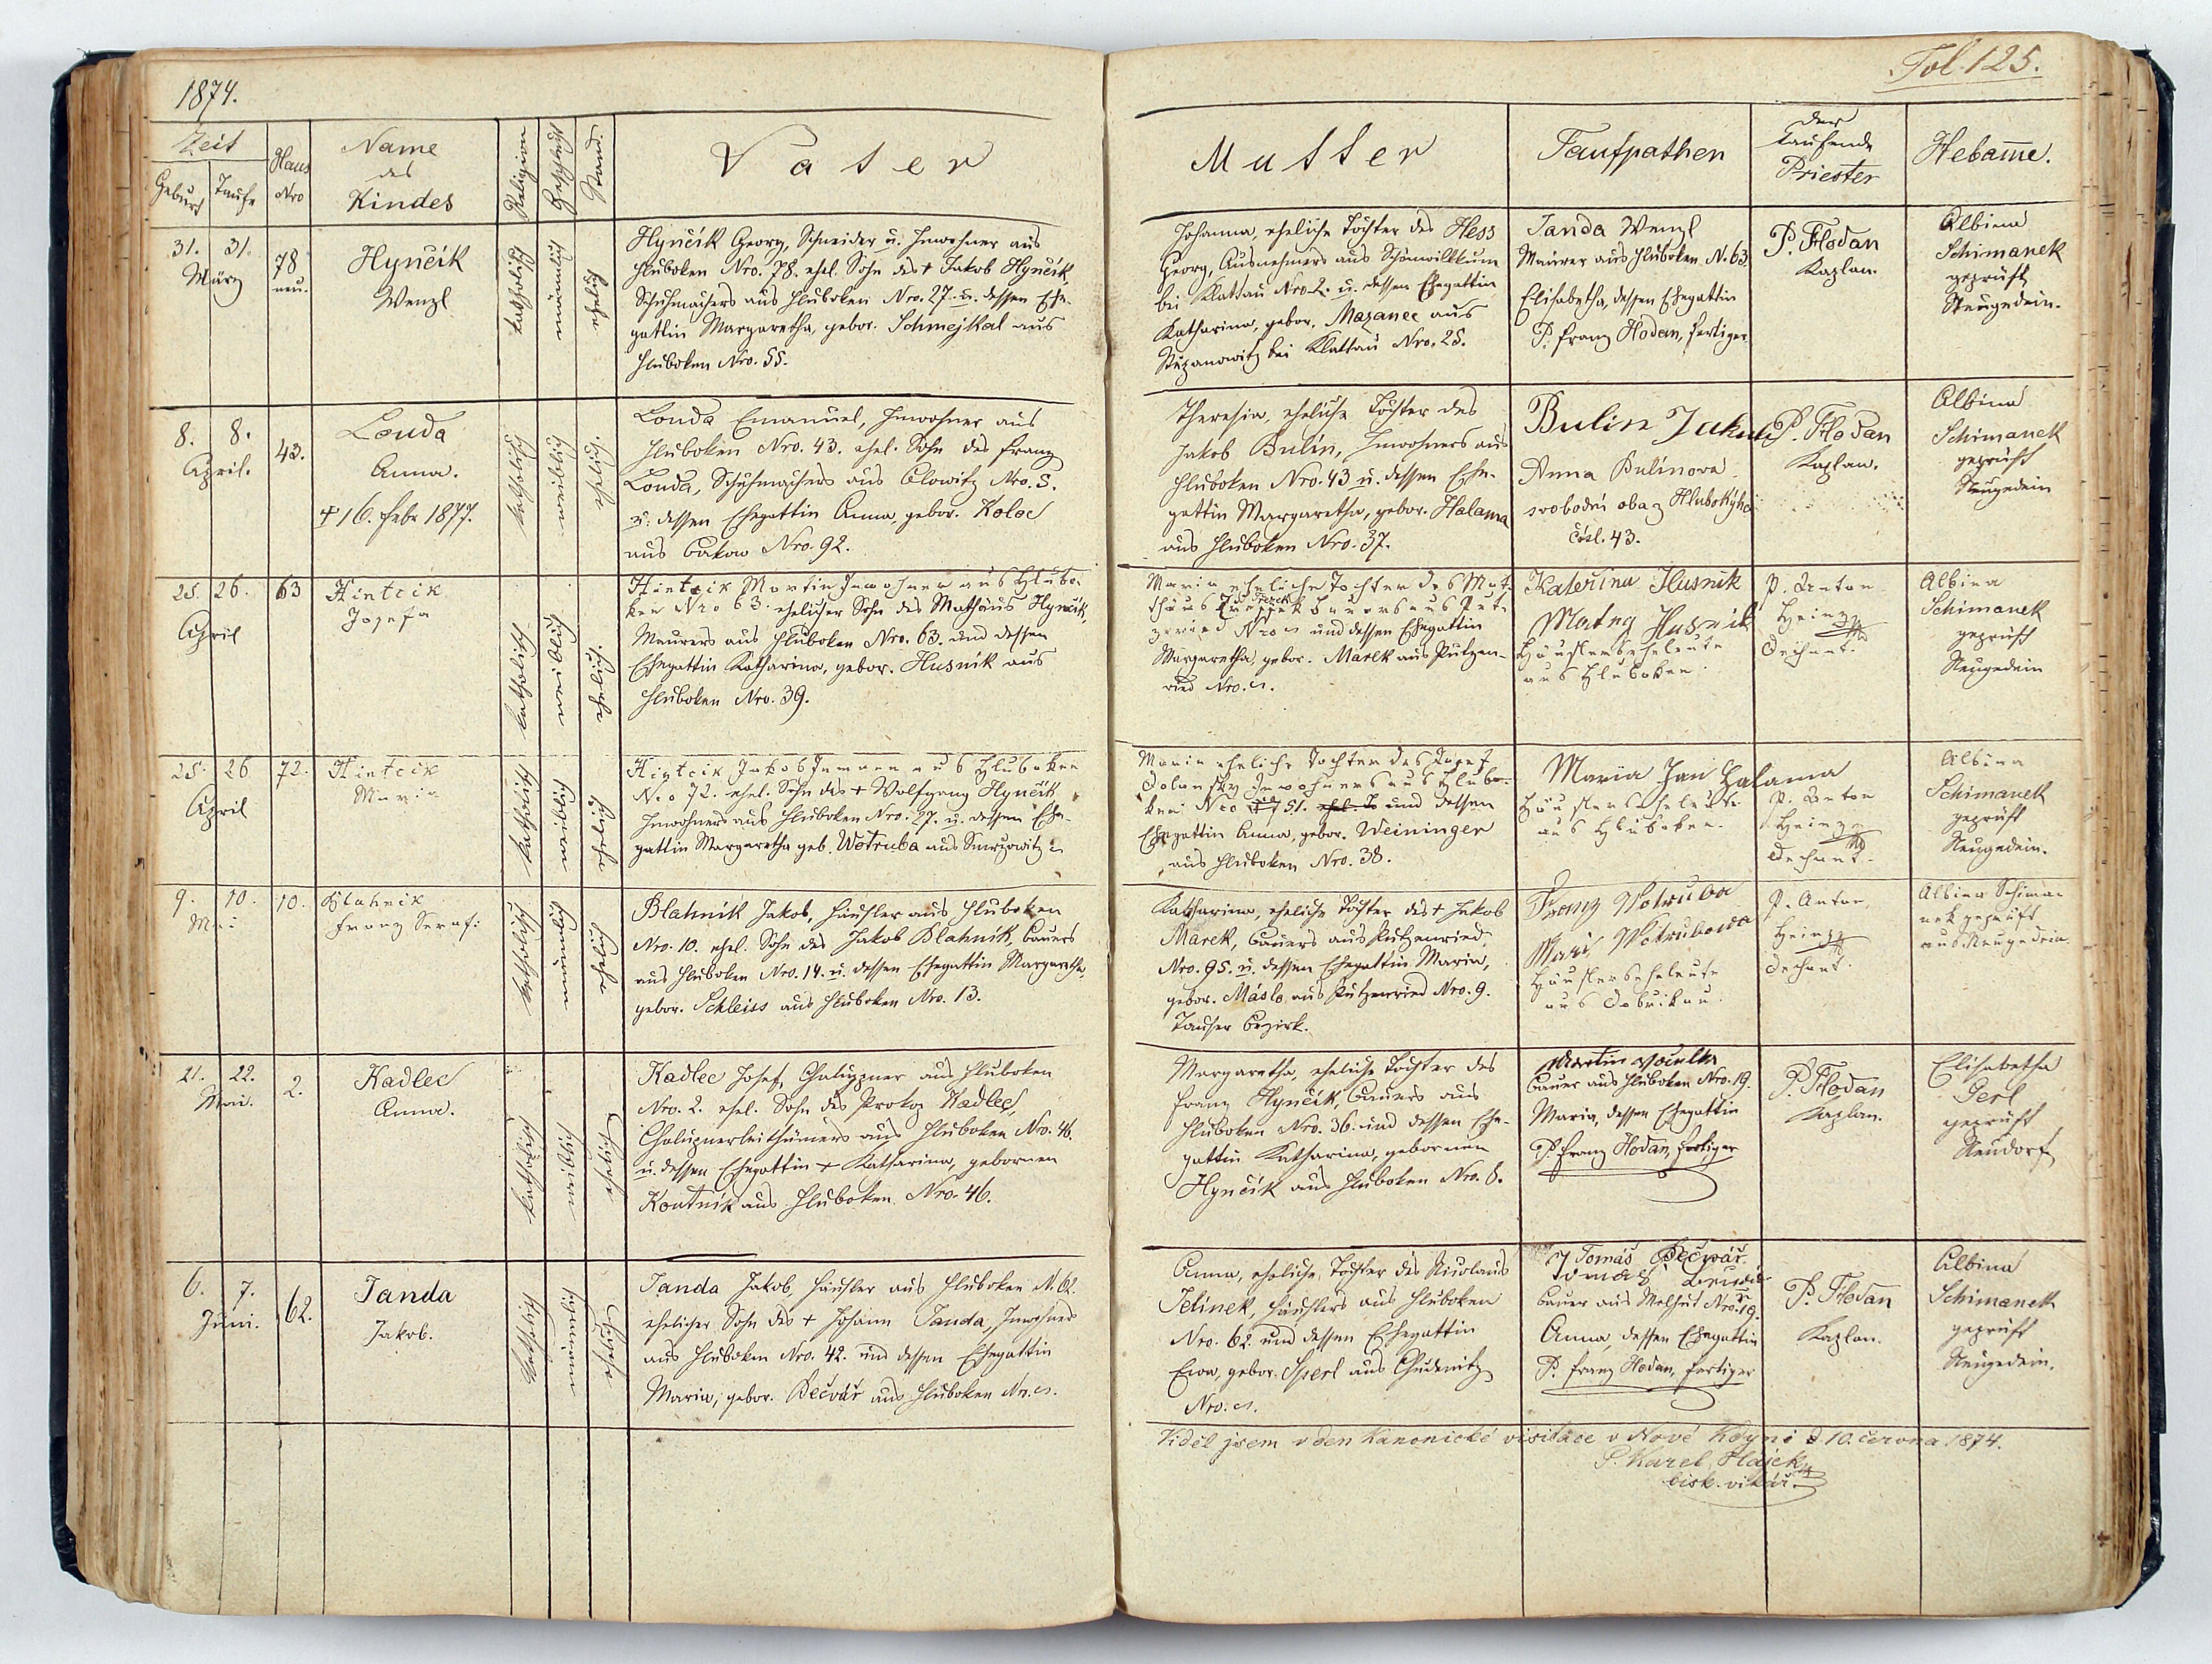 1874.
Fol. 125.
Zeit
Geburt
Taufe
Haus
Nro
Name
des
Kindes
Religion
Geschlecht
Stand
Vater
Mutter
Taufpathen
der
taufende
Priester
Hebamme.
31. 31.
März
78
neu.
Hynčik
Wenzl
katholisch
männlich
ehelich
Hynčik Georg, Schneider u. Inwohner aus
Hluboken Nro. 78. ehel. Sohn des † Jakob Hynčik,
Schuhmachers aus Hluboken Nro. 27. u. dessen Ehe-
gattin Margaretha, gebor. Schmejkal aus
Hluboken Nro. 55.
Johanna, eheliche Tochter des Hess
Georg, Ausnehmers aus Schönwillkum
bei Klattau Nro. 2. u. dessen Ehegattin
Katharina, gebor. Mazanec aus
bei Klattau Nro. 25.
Janda Wenzl
Maurer aus Hluboken N. 63.
Elisabetha, dessen Ehegattin
P. Franz Hodan, fertiger
P. Hodan
Kaplan.
Albina
Schimanek
geprüft
Neugedein.
8. 8.
April.
43.
Louda
Anna.
† 16. Febr 1877.
katholisch
weiblich
ehelich
Louda Emanuel, Inwohner aus
Hluboken Nro. 43. ehel. Sohn des Franz
Louda, Schuhmachers aus Nro. 5.
u. dessen Ehegattin Anna, gebor. Koloc
aus Nro. 92.
Theresia, eheliche Tochter des
Jakob Bulin, Inwohners aus
Hluboken Nro. 43 u. dessen Ehe-
gattin Margaretha, gebor. Halama
aus Hluboken Nro. 37.
Bulin Jakub
Anna Bulinova
svobodní oba z Hlubokýho
čísl. 43.
P. Hodan
Kaplan.
Albina
Schimanek
geprüft
Neugedein
25. 26.
April
63
Hintcik
Josefa
katholisch
weiblich
ehelich
Hintcik Martin Inwohner aus Hlubo-
ken Nro 63. ehelicher Sohn des Mathäus Hynčik,
Maurers aus Hluboken Nro. 63. und dessen
Ehegattin Katharina, gebor. Husnik aus
Hluboken Nro. 39.
Maria eheliche Tochter des Mat-
thäus Bauers aus Putz-
enried Nro und dessen Ehegattin
Margaretha, gebor. Marek aus Putzen-
ried Nro.
Kateřina Husnik
Matěj Husnik
Häuslerseheleute
aus Hluboken.
P. Anton
Heinz
Dechant.
Albina
Schimanek
geprüft
Neugedein
25. 26.
April
72.
Hintcik
Maria
katholisch
weiblich
ehelich
Hintcik Jakob Inmann aus Hluboken
Nro 72. ehel. Sohn des † Wolfgang Hynčik
Inwohners aus Hluboken Nro. 27. u. dessen Ehe-
gattin Margaretha geb. Wotruba aus
Maria eheliche Tochter des Josef
Dolansky Inwohners aus Hlubo-
ken Nro 51. und dessen
Ehegattin Anna, gebor. Weininger
aus Hluboken Nro. 38.
Maria Jan Halama
Häuslerseheleute
aus Hluboken.
P. Anton
Heinz
Dechant.
Albina
Schimanek
geprüft
Neugedein.
9. 10.
Mai
10.
Blahnik
Franz Seraf:
katholisch
männlich
ehelich
Blahnik Jakob, Häusler aus Hluboken
Nro. 10. ehel. Sohn des Jakob Blahnik, Bauers
aus Hluboken Nro. 14. u. dessen Ehegattin Margaretha,
gebor. Schleiss aus Hluboken Nro. 13.
Katharina, eheliche Tochter des † Jakob
Marek, Bauers aus Putzenried
Nro. 95. u. dessen Ehegattin Maria,
gebor. Máslo aus Putzenried Nro. 9.
Tauser Bezirk.
Franz Wotruba
Mari Wotrubowa
Häuslerseheleute
aus Dobrikau.
P. Anton
Heinz
Dechant.
Albina Schima-
nek geprüft
aus Neugedein
21. 22.
Mai.
2.
Kadlec
Anna.
katholisch
weiblich
ehelich
Kadlec Josef, Chaluppner aus Hluboken
Nro. 2. ehel. Sohn des Prokop Kadlec,
aus Hluboken Nro. 46.
u. dessen Ehegattin † Katharina, gebornen
Koutnik aus Hluboken Nro. 46.
Margaretha, eheliche Tochter des
Franz Hynčik, Bauers aus
Hluboken Nro. 36. und dessen Ehe-
gattin Katharina, gebornen
Hynčik aus Hluboken Nro. 8.
Martin
Bauer aus Hluboken Nro. 19.
Maria, dessen Ehegattin
P. Franz Hodan, fertiger
P. Hodan
Kaplan.
Elisabetha
Perl
geprüft
Neudorf
6. 7.
Juni.
62.
Janda
Jakob.
katholisch
männlich
ehelich
Janda Jakob, Häusler aus Hluboken N. 62.
ehelicher Sohn des † Johann Janda, Inwohners
aus Hluboken Nro. 42. und dessen Ehegattin
Maria, gebor. Bečvář aus Hluboken Nr.
Anna, eheliche Tochter des Nicolaus
Jelinek, Häuslers aus Hluboken
Nro. 62. und dessen Ehegattin
Ewa, gebor. Sperl aus Chudenitz
Nro.
Tomáš Bečvář
Bauer aus Melhut Nro. 19.
Anna, dessen Ehegattin
P. Franz Hodan, fertiger
P. Hodan
Kaplan.
Albina
Schimanek
geprüft
Neugedein.
Viděl jsem v den kanonické visitace v Nové Kdyni d. 10. června 1874.
P. Karel Hájek
bisk. vikář.